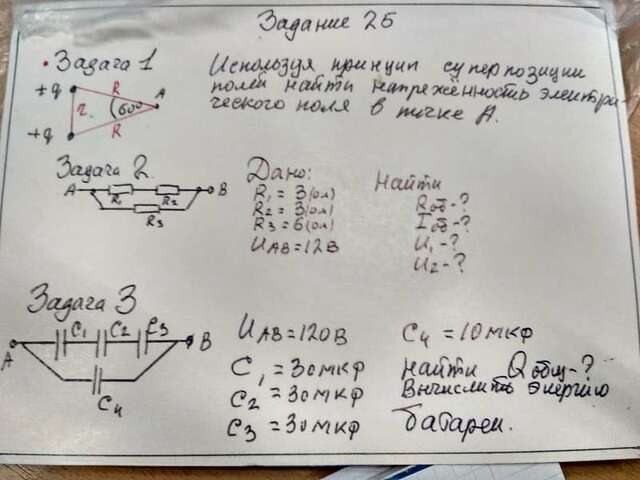 Задание 25
• Задача 1
Используя принцип суперпозиции
полей найти напряжённость электри-
ческого поля в точке А.
+q
R
A
r
60°
+q
R
Задача 2.
A
B
R1
R2
R3
Дано:
R1 = 3(ом)
R2 = 3(ом)
R3 = 6(ом)
UAB = 12В
Найти
Rоб-?
Iоб-?
U1-?
U2-?
Задача 3
A
C1
C2
C3
B
C4
UAB = 120В
C1 = 30мкФ
C2 = 30мкФ
C3 = 30мкФ
C4 = 10мкФ
Найти Qобщ-?
Вычислить энергию
батареи.